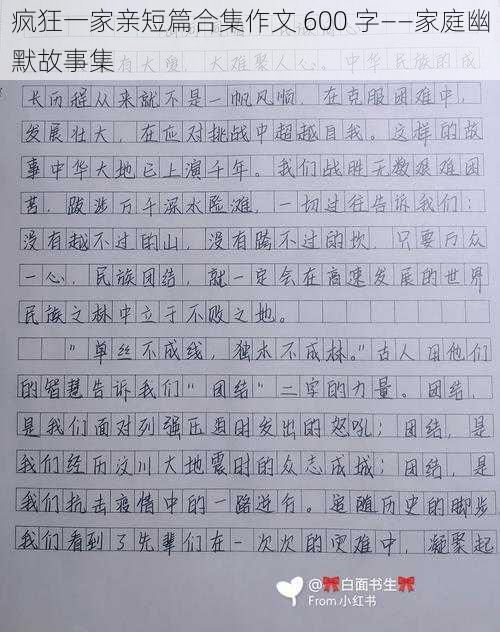 疯狂一家亲短篇合集作文 600 字——家庭幽
默故事集
有大爱，大难聚人心。中华民族的成
长历程从来就不是一帆风顺，在克服困难中，
发展壮大，在应对挑战中超越自我。这样的故
事中华大地已上演千年。我们战胜无数艰难困
苦，跋涉万千深水险滩，一切过往告诉我们：
没有越不过的山，没有腾不过的坎，只要万众
一心，民族团结，就一定会在高速发展的世界
民族之林中立于不败之地。
“单丝不成线，独木不成林。”古人用他们
的智慧告诉我们“团结”二字的力量。团结，
是我们面对列强压迫时发出的怒吼；团结，是
我们经历汶川大地震时的众志成城；团结，是
我们抗击疫情中的一路逆行。追随历史的脚步
我们看到了先辈们在一次次的灾难中，凝聚起
@🎀白面书生🎀
From 小红书